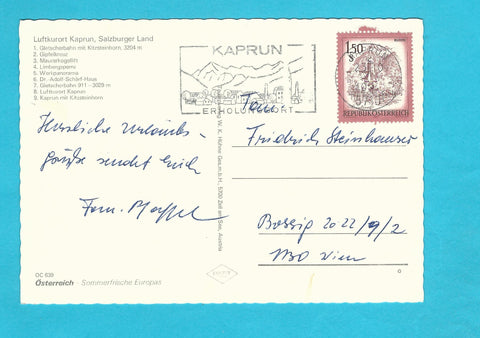 Luftkurort Kaprun, Salzburger Land
1. Gletscherbahn mit Kitzsteinhorn, 3204 m
2. Gipfelkreuz
3. Maurerkogellift
4. Limbergsperre
5. Werkpanorama
6. Dr. Adolf-Schärf-Haus
7. Gletscherbahn 911 - 3029 m
8. Luftkurort Kaprun
9. Kaprun mit Kitzsteinhorn
KAPRUN
ERHOLUNGSORT
1.50
S
REPUBLIK ÖSTERREICH
Herzliche Urlaubs-
grüße sendet Euch
Fam.
Fam.
Friedrich Steinhauser
20-22/9/2
1130 Wien
Ges.m.b.H., 5700 Zell am See, Austria
DC 639
Österreich - Sommerfrische Europas